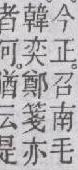 今正召南毛
韓奕鄭箋亦
者何猶云是